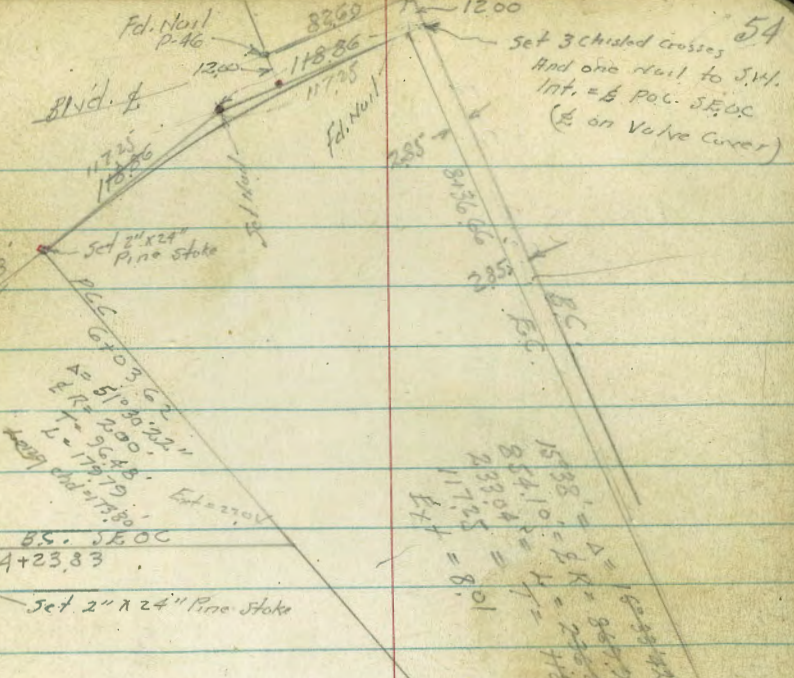 54
Fd. Nail
P-46
82.69
12.00
Set 3 Chisled Crosses
And one Nail to S.W.
Int. = ⅊ P.O.C. S.E.O.C
(⅊ on Valve Cover)
12.00
1+8.86
117.25
Fd. Nail
Blvd. ⅊
117.25
1+8.86
Set Nail
Set 2" x 24"
Pine Stake
2.85
8+36.66
2.85
B.C.
E.C.
PCC
6+03.62
Δ = 51°30'22"
⅊ R = 200.
T = 96.48
L = 179.79
chd = 173.80
Ext = 22.04
B.S. S.E.OC
4+23.83
Set 2" x 24" Pine Stake
15°38' = Δ =
854.10' = ⅊ R =
233.04 =
117.25
Ext = 8.01